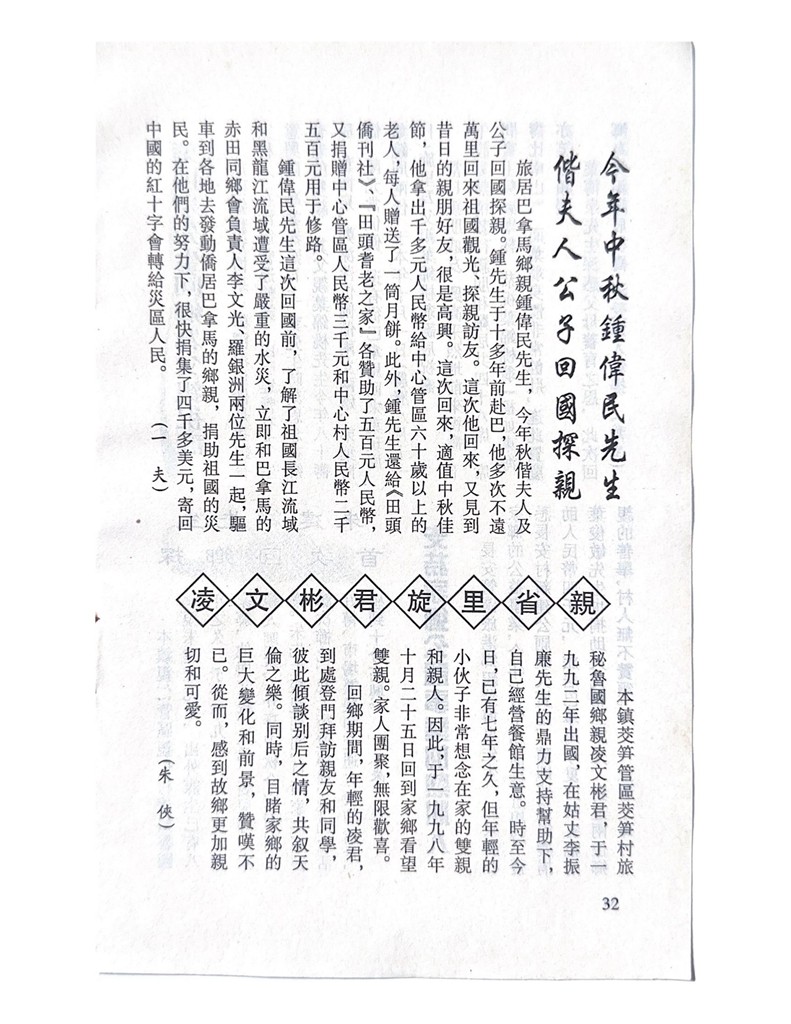 今年中秋鍾偉民先生
偕夫人公子回國探親
旅居巴拿馬鄉親鍾偉民先生，今年秋偕夫人及
公子回國探親。鍾先生于十多年前赴巴，他多次不遠
萬里回來祖國觀光、探親訪友。這次他回來，又見到
昔日的親朋好友，很是高興。這次回來，適值中秋佳
節，他拿出千多元人民幣給中心管區六十歲以上的
老人，每人贈送了一筒月餅。此外，鍾先生還給《田頭
僑刊社》、『田頭耆老之家』各贊助了五百元人民幣，
又捐贈中心管區人民幣三千元和中心村人民幣二千
五百元用于修路。
鍾偉民先生這次回國前，了解了祖國長江流域
和黑龍江流域遭受了嚴重的水災，立即和巴拿馬的
赤田同鄉會負責人李文光、羅銀洲兩位先生一起，驅
車到各地去發動僑居巴拿馬的鄉親，捐助祖國的災
民。在他們的努力下，很快捐集了四千多美元，寄回
中國的紅十字會轉給災區人民。
（一 夫）
凌文彬君旋里省親
本鎮茭笋管區茭笋村旅
秘魯國鄉親凌文彬君，于一
九九二年出國，在姑丈李振
廉先生的鼎力支持幫助下，
自己經營餐館生意。時至今
日，已有七年之久，但年輕的
小伙子非常想念在家的雙親
和親人。因此，于一九九八年
十月二十五日回到家鄉看望
雙親。家人團聚，無限歡喜。
回鄉期間，年輕的凌君，
到處登門拜訪親友和同學，
彼此傾談别后之情，共叙天
倫之樂。同時，目睹家鄉的
巨大變化和前景，贊嘆不
已。從而，感到故鄉更加親
切和可愛。
（朱 俠）
32